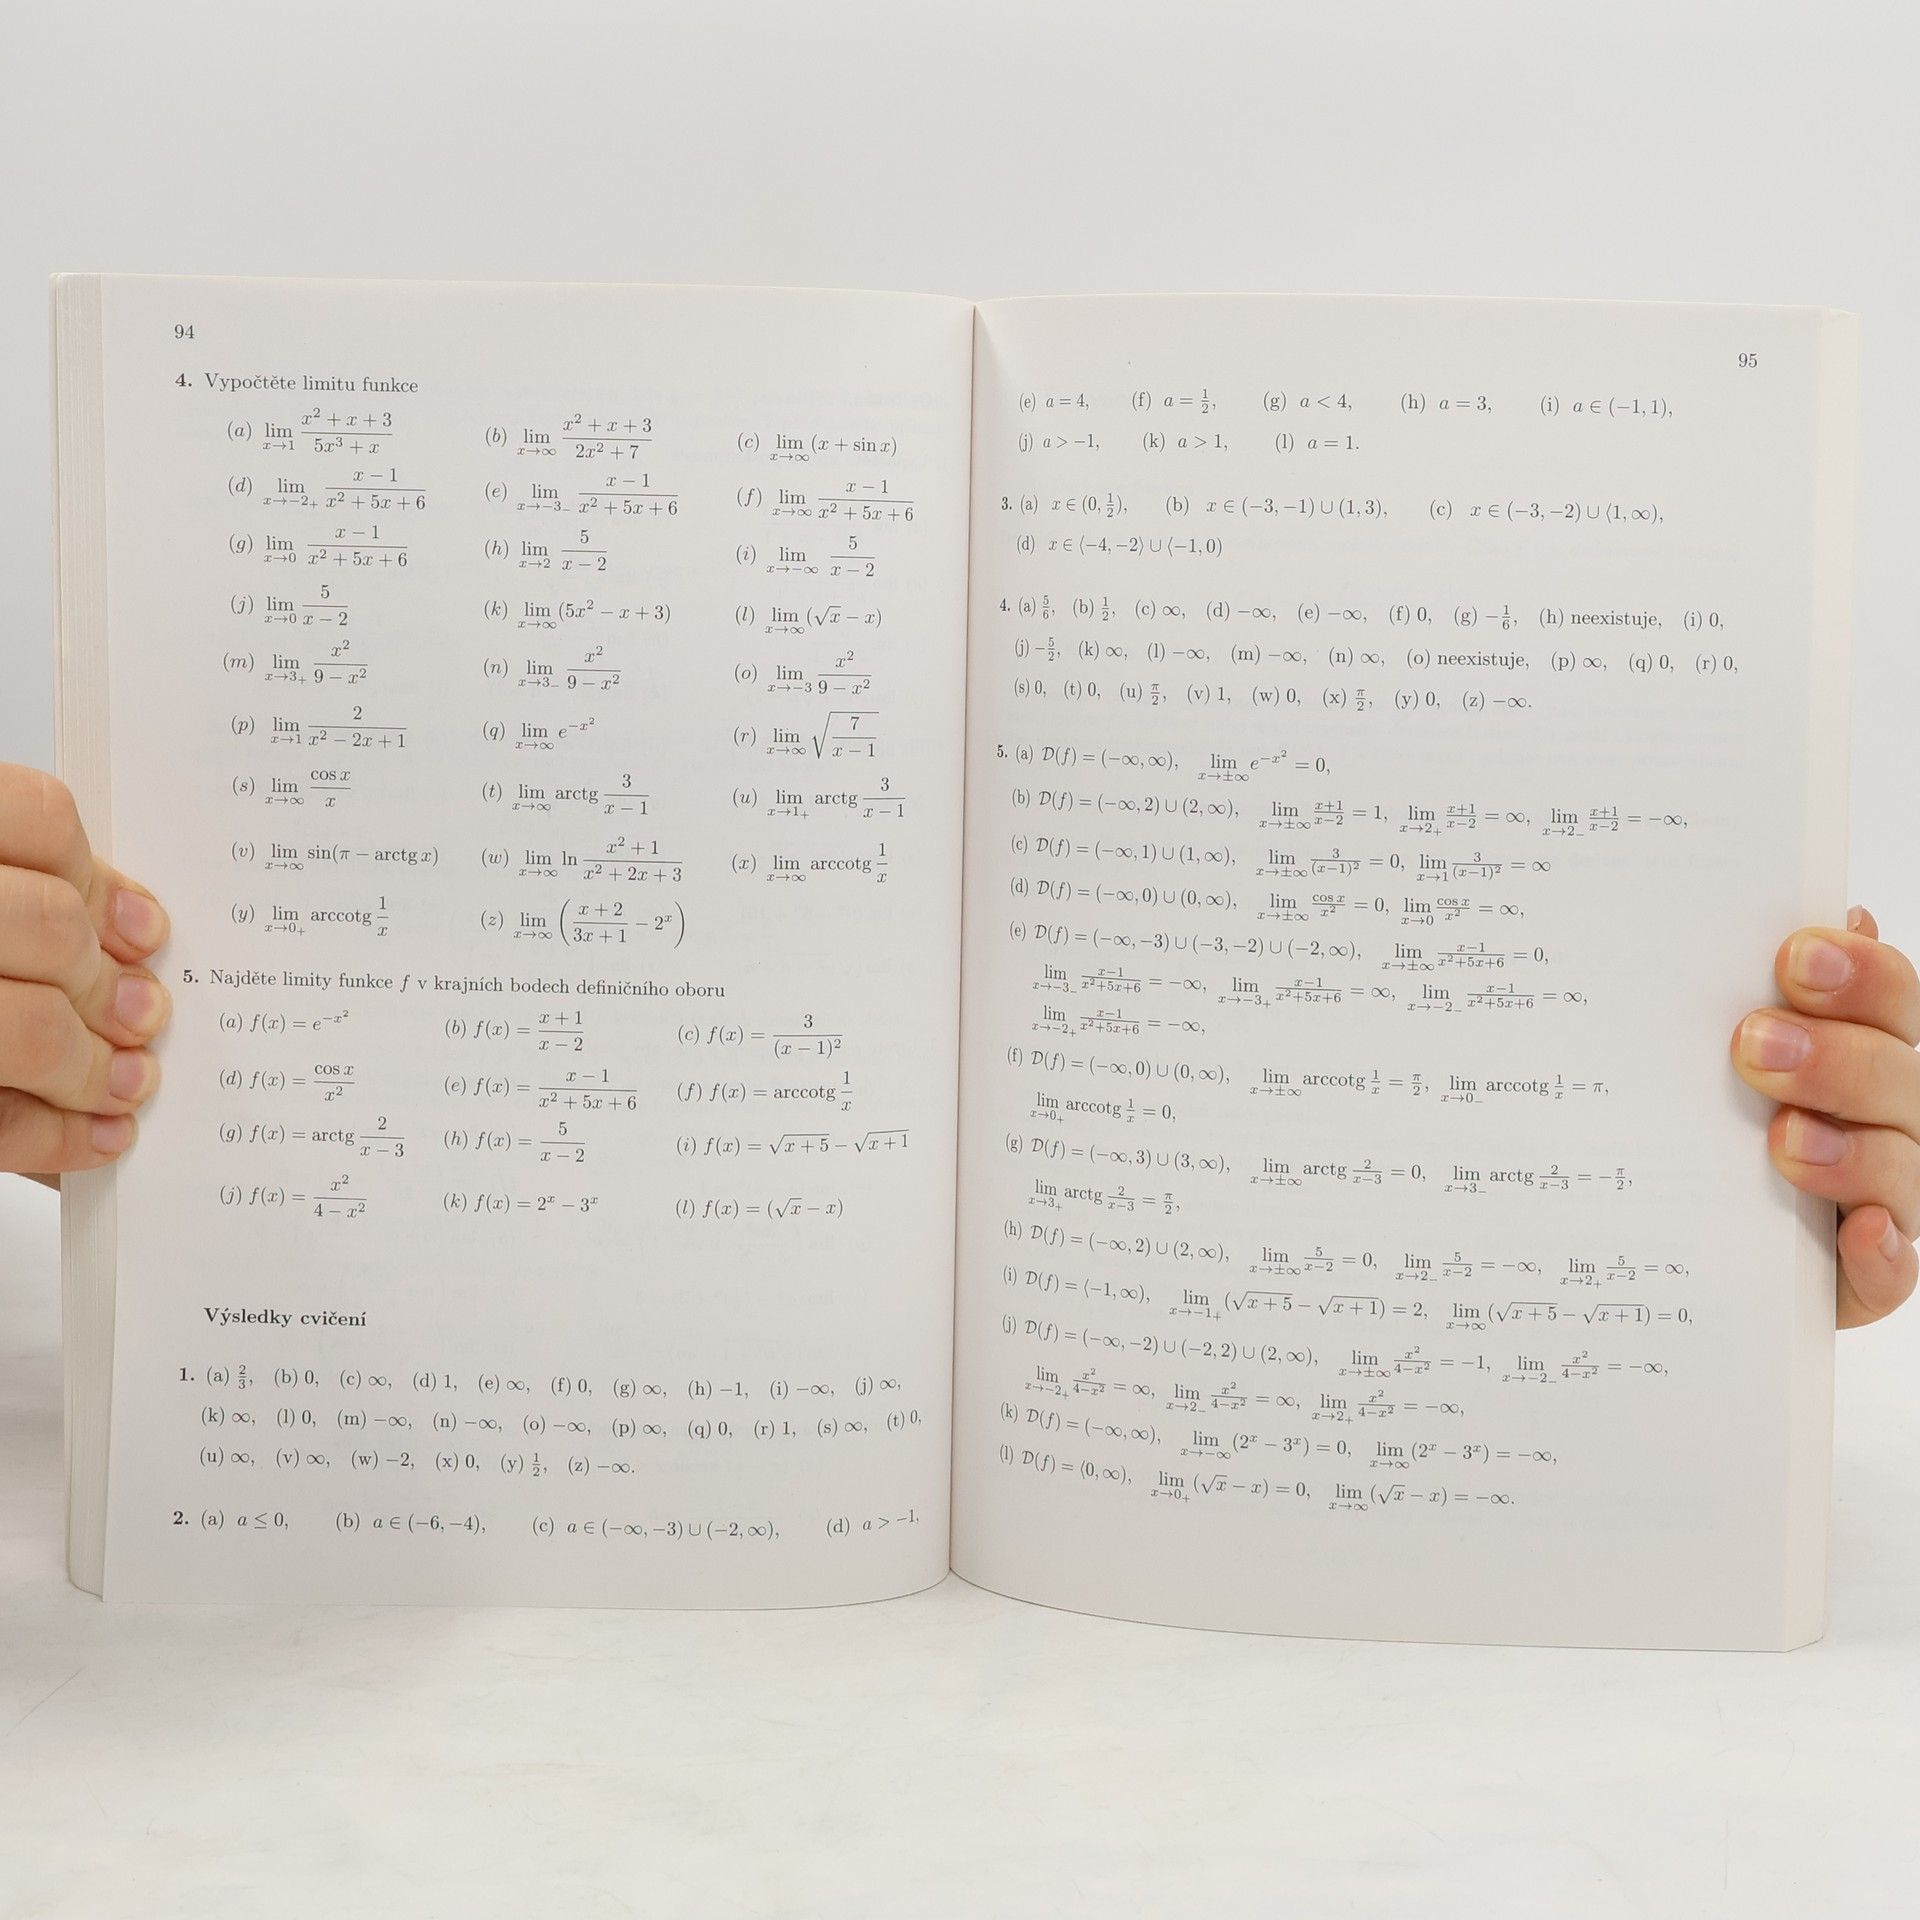 94
4. Vypočtěte limitu funkce
(a) lim_{x→1} (x² + x + 3)/(5x³ + x) (b) lim_{x→∞} (x² + x + 3)/(2x² + 7) (c) lim_{x→∞} (x + sin x)
(d) lim_{x→−2₊} (x − 1)/(x² + 5x + 6) (e) lim_{x→−3₋} (x − 1)/(x² + 5x + 6) (f) lim_{x→∞} (x − 1)/(x² + 5x + 6)
(g) lim_{x→0} (x − 1)/(x² + 5x + 6) (h) lim_{x→2} 5/(x − 2) (i) lim_{x→−∞} 5/(x − 2)
(j) lim_{x→0} 5/(x − 2) (k) lim_{x→∞} (5x² − x + 3) (l) lim_{x→∞} (√x − x)
(m) lim_{x→3₊} x²/(9 − x²) (n) lim_{x→3₋} x²/(9 − x²) (o) lim_{x→−3} x²/(9 − x²)
(p) lim_{x→1} 2/(x² − 2x + 1) (q) lim_{x→∞} e^{−x²} (r) lim_{x→∞} √(7/(x − 1))
(s) lim_{x→∞} cos x/x (t) lim_{x→∞} arctg 3/(x − 1) (u) lim_{x→1₊} arctg 3/(x − 1)
(v) lim_{x→∞} sin(π − arctg x) (w) lim_{x→∞} ln (x² + 1)/(x² + 2x + 3) (x) lim_{x→∞} arccotg 1/x
(y) lim_{x→0₊} arccotg 1/x (z) lim_{x→∞} ((x + 2)/(3x + 1) − 2ˣ)
5. Najděte limity funkce f v krajních bodech definičního oboru
(a) f(x) = e^{−x²} (b) f(x) = (x + 1)/(x − 2) (c) f(x) = 3/(x − 1)²
(d) f(x) = cos x/x² (e) f(x) = (x − 1)/(x² + 5x + 6) (f) f(x) = arccotg 1/x
(g) f(x) = arctg 2/(x − 3) (h) f(x) = 5/(x − 2) (i) f(x) = √(x + 5) − √(x + 1)
(j) f(x) = x²/(4 − x²) (k) f(x) = 2ˣ − 3ˣ (l) f(x) = (√x − x)
Výsledky cvičení
1. (a) 2/3, (b) 0, (c) ∞, (d) 1, (e) ∞, (f) 0, (g) ∞, (h) −1, (i) −∞, (j) ∞,
(k) ∞, (l) 0, (m) −∞, (n) −∞, (o) −∞, (p) ∞, (q) 0, (r) 1, (s) ∞, (t) 0,
(u) ∞, (v) ∞, (w) −2, (x) 0, (y) 1/2, (z) −∞.
2. (a) a ≤ 0, (b) a ∈ (−6, −4), (c) a ∈ (−∞, −3) ∪ (−2, ∞), (d) a > −1,
95
(e) a = 4, (f) a = 1/2, (g) a < 4, (h) a = 3, (i) a ∈ (−1, 1),
(j) a > −1, (k) a > 1, (l) a = 1.
3. (a) x ∈ (0, 1/2), (b) x ∈ (−3, −1) ∪ (1, 3), (c) x ∈ (−3, −2) ∪ ⟨1, ∞),
(d) x ∈ ⟨−4, −2⟩ ∪ ⟨−1, 0)
4. (a) 5/6, (b) 1/2, (c) ∞, (d) −∞, (e) −∞, (f) 0, (g) −1/6, (h) neexistuje, (i) 0,
(j) −5/2, (k) ∞, (l) −∞, (m) −∞, (n) ∞, (o) neexistuje, (p) ∞, (q) 0, (r) 0,
(s) 0, (t) 0, (u) π/2, (v) 1, (w) 0, (x) π/2, (y) 0, (z) −∞.
5. (a) D(f) = (−∞, ∞), lim_{x→±∞} e^{−x²} = 0,
(b) D(f) = (−∞, 2) ∪ (2, ∞), lim_{x→±∞} (x+1)/(x−2) = 1, lim_{x→2₊} (x+1)/(x−2) = ∞, lim_{x→2₋} (x+1)/(x−2) = −∞,
(c) D(f) = (−∞, 1) ∪ (1, ∞), lim_{x→±∞} 3/(x−1)² = 0, lim_{x→1} 3/(x−1)² = ∞
(d) D(f) = (−∞, 0) ∪ (0, ∞), lim_{x→±∞} cos x/x² = 0, lim_{x→0} cos x/x² = ∞,
(e) D(f) = (−∞, −3) ∪ (−3, −2) ∪ (−2, ∞), lim_{x→±∞} (x−1)/(x²+5x+6) = 0,
lim_{x→−3₋} (x−1)/(x²+5x+6) = −∞, lim_{x→−3₊} (x−1)/(x²+5x+6) = ∞, lim_{x→−2₋} (x−1)/(x²+5x+6) = ∞,
lim_{x→−2₊} (x−1)/(x²+5x+6) = −∞,
(f) D(f) = (−∞, 0) ∪ (0, ∞), lim_{x→±∞} arccotg 1/x = π/2, lim_{x→0₋} arccotg 1/x = π,
lim_{x→0₊} arccotg 1/x = 0,
(g) D(f) = (−∞, 3) ∪ (3, ∞), lim_{x→±∞} arctg 2/(x−3) = 0, lim_{x→3₋} arctg 2/(x−3) = −π/2,
lim_{x→3₊} arctg 2/(x−3) = π/2,
(h) D(f) = (−∞, 2) ∪ (2, ∞), lim_{x→±∞} 5/(x−2) = 0, lim_{x→2₋} 5/(x−2) = −∞, lim_{x→2₊} 5/(x−2) = ∞,
(i) D(f) = ⟨−1, ∞), lim_{x→−1₊} (√(x + 5) − √(x + 1)) = 2, lim_{x→∞} (√(x + 5) − √(x + 1)) = 0,
(j) D(f) = (−∞, −2) ∪ (−2, 2) ∪ (2, ∞), lim_{x→±∞} x²/(4−x²) = −1, lim_{x→−2₋} x²/(4−x²) = −∞,
lim_{x→−2₊} x²/(4−x²) = ∞, lim_{x→2₋} x²/(4−x²) = ∞, lim_{x→2₊} x²/(4−x²) = −∞,
(k) D(f) = (−∞, ∞), lim_{x→−∞} (2ˣ − 3ˣ) = 0, lim_{x→∞} (2ˣ − 3ˣ) = −∞,
(l) D(f) = ⟨0, ∞), lim_{x→0₊} (√x − x) = 0, lim_{x→∞} (√x − x) = −∞.